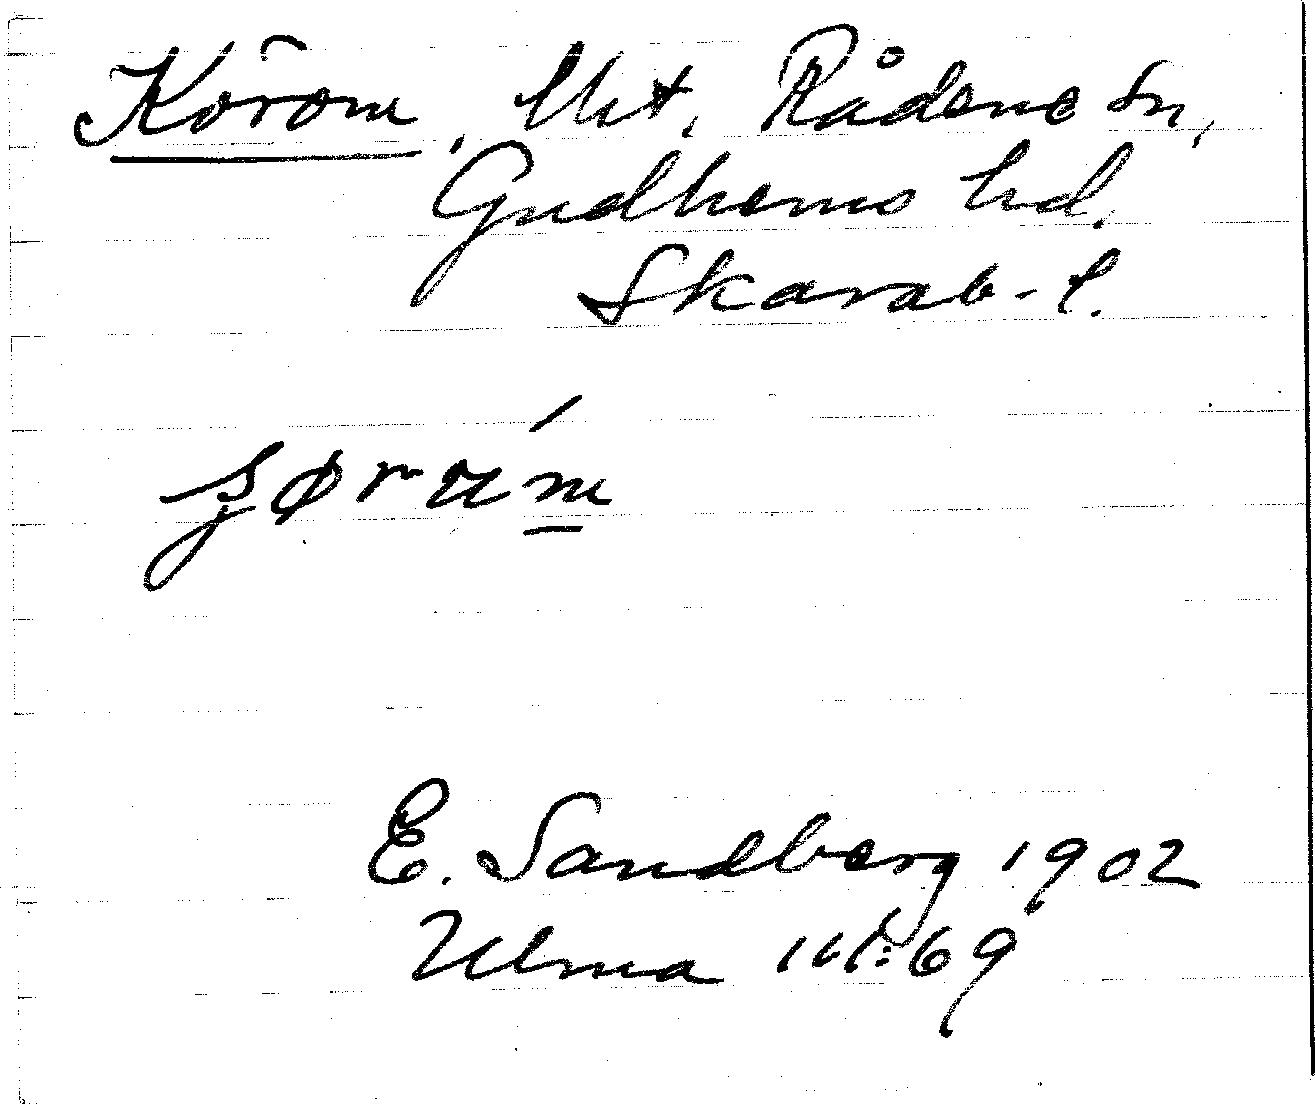 Körom, Utt. Rådene sn,
Gudhems hd.
Skarab. l.
E. Sandberg 1902
Ulma 111:69